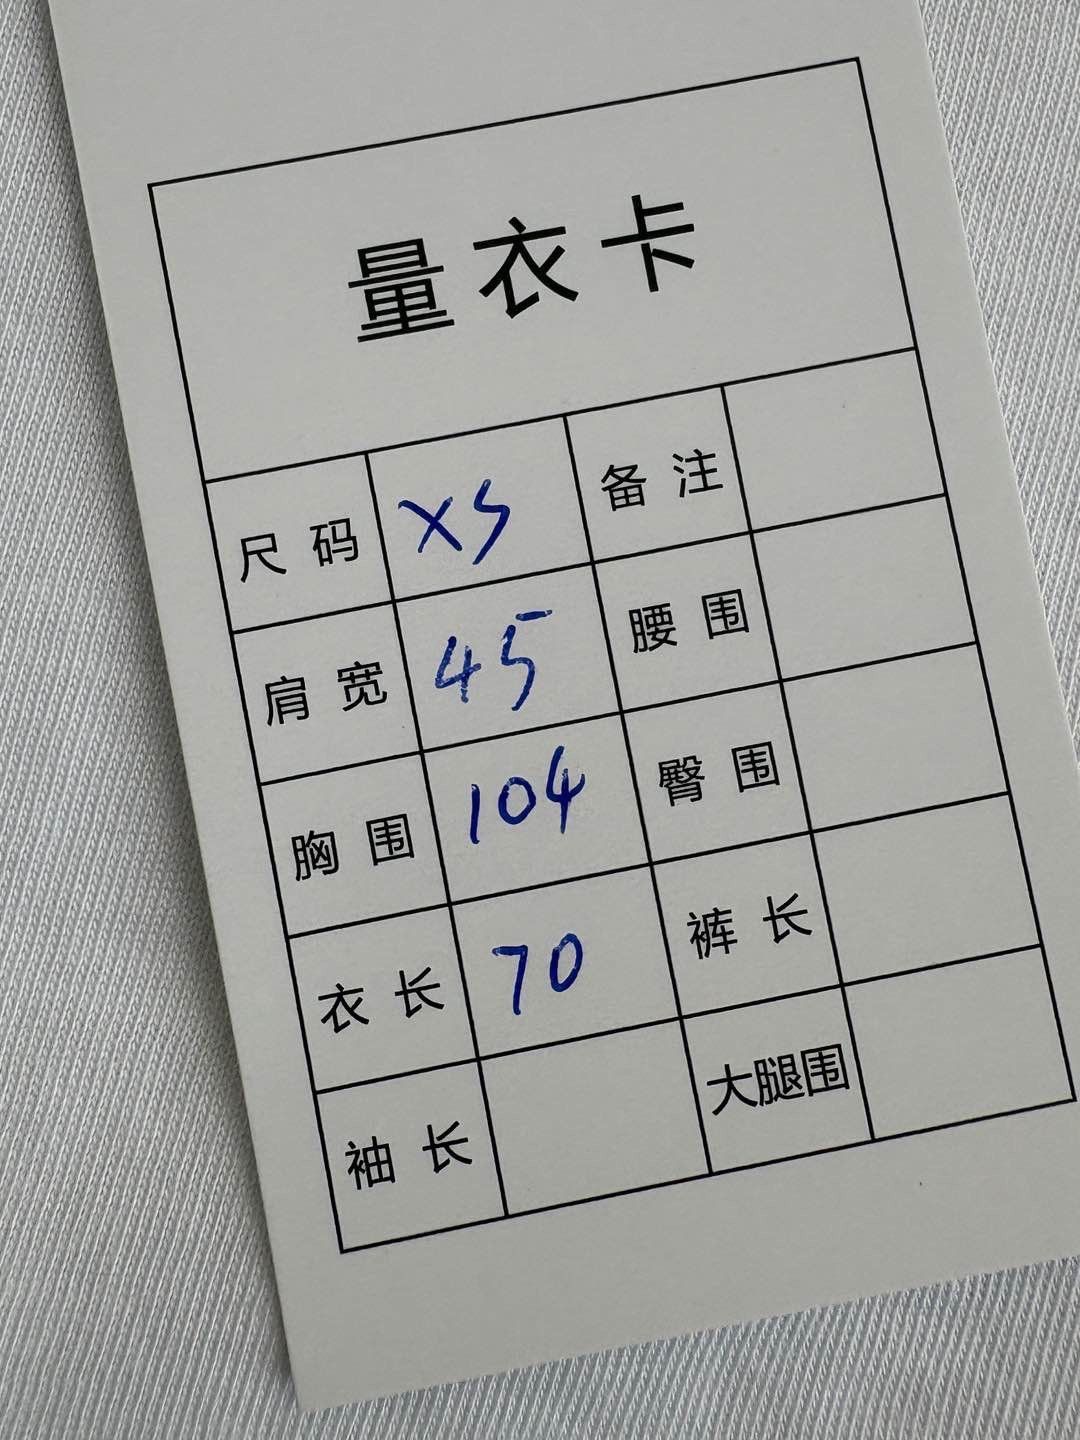 量衣卡
尺码 XS 备注
肩宽 45 腰围
胸围 104 臀围
衣长 70 裤长
袖长 大腿围